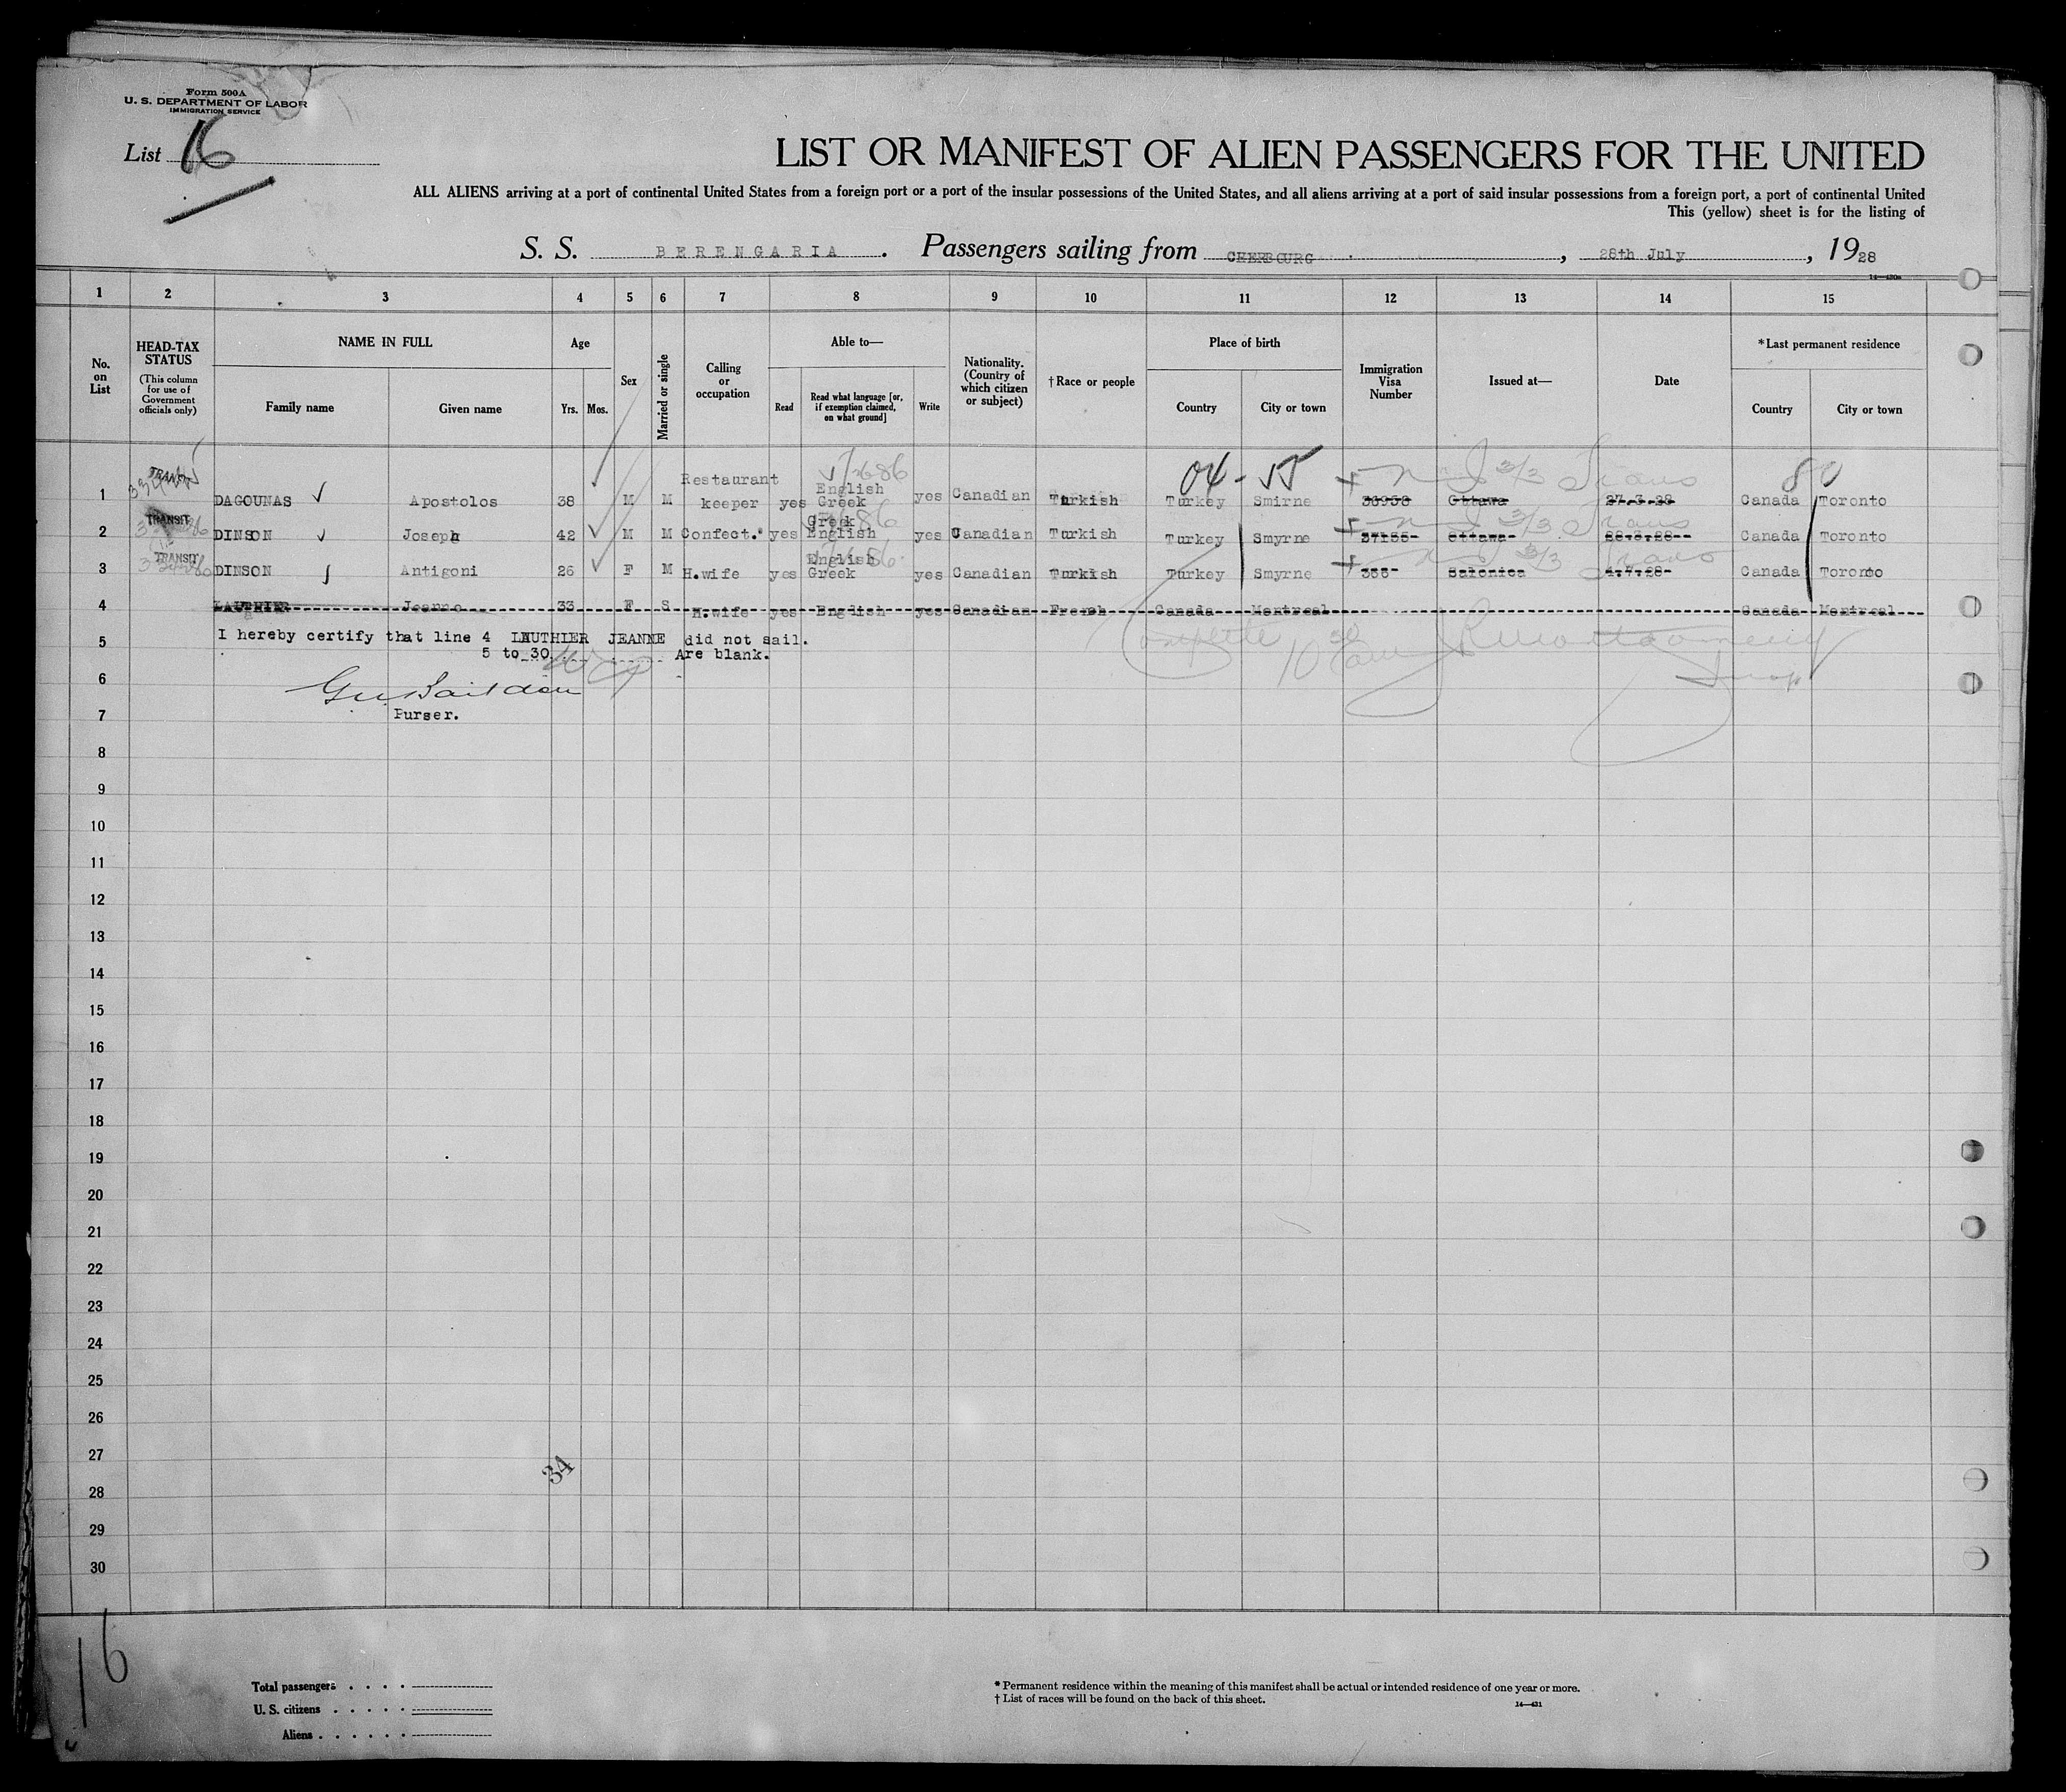 Form 500A
U. S. DEPARTMENT OF LABOR
IMMIGRATION SERVICE
List 16
LIST OR MANIFEST OF ALIEN PASSENGERS FOR THE UNITED
ALL ALIENS arriving at a port of continental United States from a foreign port or a port of the insular possessions of the United States, and all aliens arriving at a port of said insular possessions from a foreign port, a port of continental United
This (yellow) sheet is for the listing of
S. S. BERENGARIA. Passengers sailing from CHERBOURG, 28th July, 1928
14—430a
1 2 3 4 5 6 7 8 9 10 11 12 13 14 15
No. on List
HEAD-TAX STATUS (This column for use of Government officials only)
NAME IN FULL
Family name Given name
Age
Yrs. Mos.
Sex
Married or single
Calling or occupation
Able to—
Read
Read what language [or, if exemption claimed, on what ground]
Write
Nationality. (Country of which citizen or subject)
† Race or people
Place of birth
Country City or town
Immigration Visa Number
Issued at—
Date
* Last permanent residence
Country City or town
04 - 80
1 TRANSIT DAGOUNAS Apostolos 38 M M Restaurant keeper yes English Greek yes Canadian Turkish Turkey Smirne 36958 Ottawa 27.3.28 Canada Toronto
2 TRANSIT DINSON Joseph 42 M M Confect. yes Greek English yes Canadian Turkish Turkey Smyrne 37155 Ottawa Canada Toronto
3 TRANSIT DINSON Antigoni 26 F M H.wife yes English Greek yes Canadian Turkish Turkey Smyrne Salonica 4.7.28 Canada Toronto
4 LAUTHIER Jeanne 33 F S H.wife yes English yes Canadian French Canada Montreal Canada Montreal
5 I hereby certify that line 4 LAUTHIER JEANNE did not sail.
5 to 30 Are blank.
6
7 Purser.
8
9
10
11
12
13
14
15
16
17
18
19
20
21
22
23
24
25
26
27
34
28
29
30
16
Total passengers
U. S. citizens
Aliens
* Permanent residence within the meaning of this manifest shall be actual or intended residence of one year or more.
† List of races will be found on the back of this sheet.
14—431